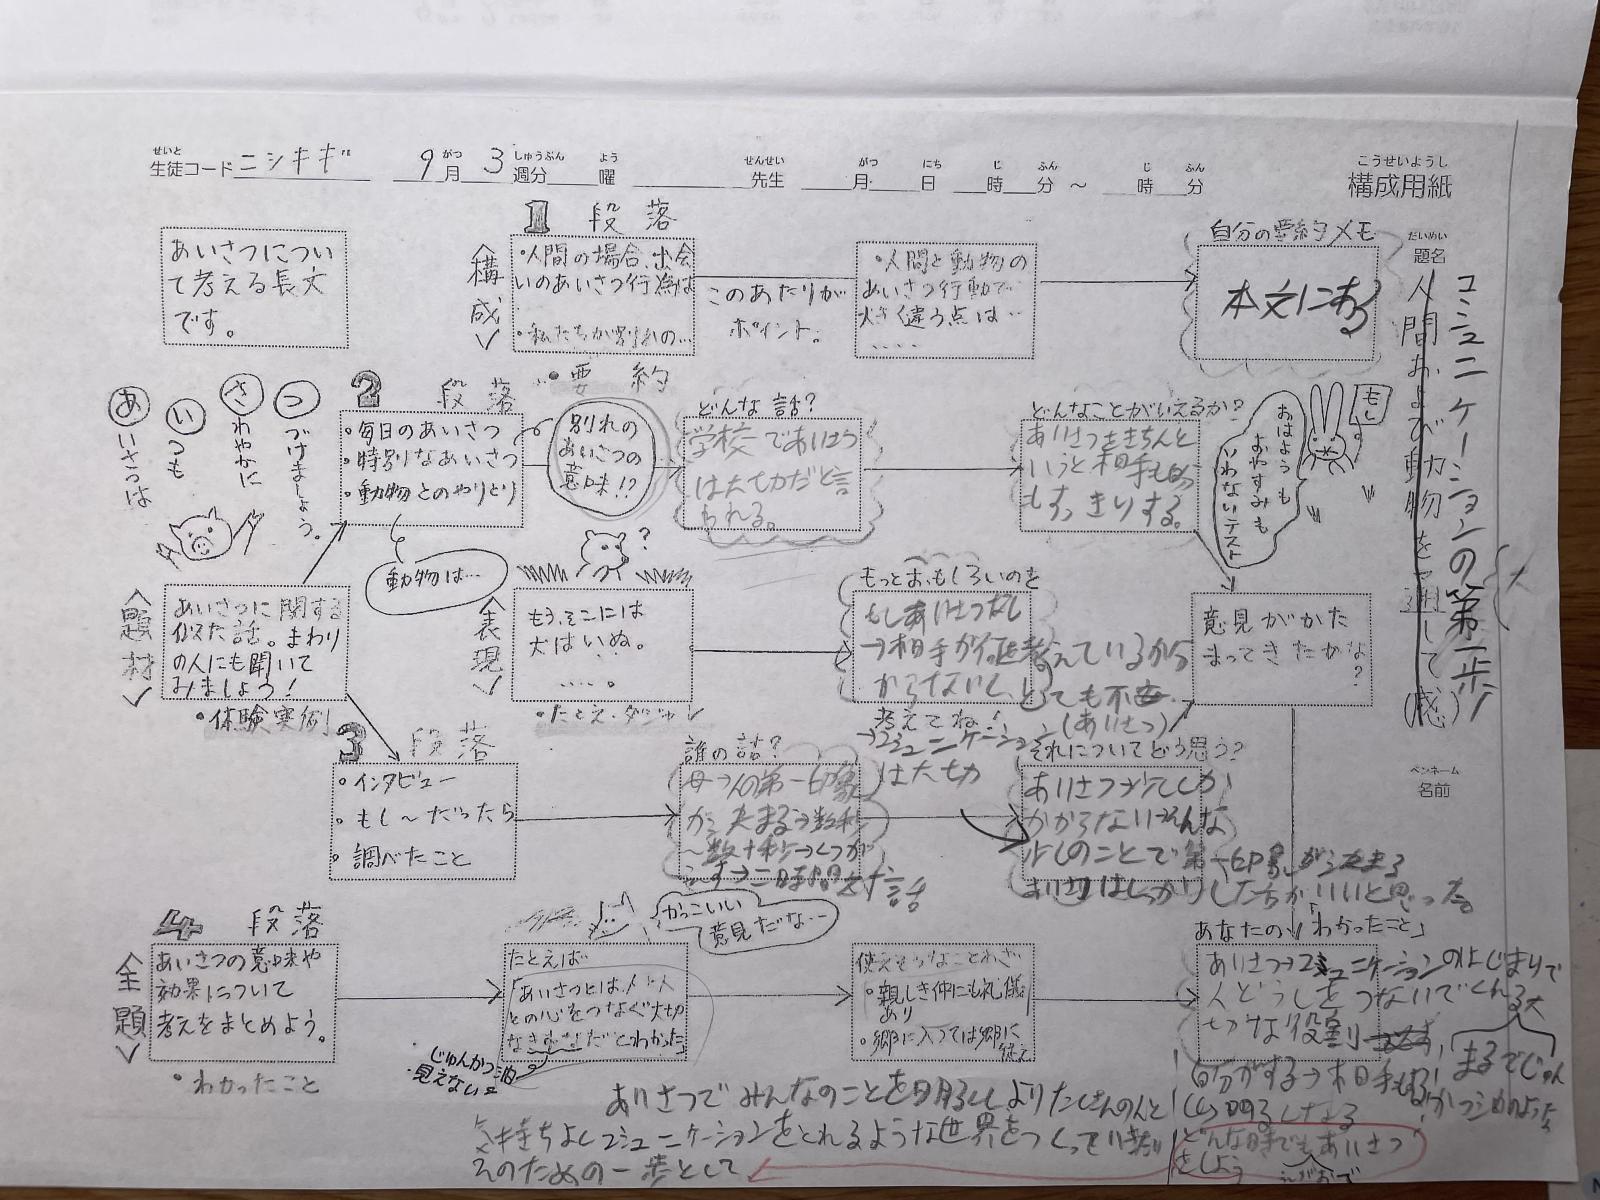 生徒コード ニシキギ 9月 3週分 曜 先生 月 日 時 分 ～ 時 分
せいと がつ しゅうぶん よう せんせい がつ にち じ ふん じ ふん
こうせいようし
構成用紙
だいめい
題名
コミュニケーションの第一歩
人間および動物を通して(感)
ペンネーム
名前
あいさつについ
て考える長文
です。
1段落
<構成>
・人間の場合、出会
いのあいさつ行為は
・私たちが別れの…
・要約
このあたりが
ポイント。
・人間と動物の
あいさつ行動で
大きく違う点は…
‥‥
自分の要約メモ
本文にある
あいさつは
いつも
さわやかに
つづけましょう。
2段落
・毎日のあいさつ
・特別なあいさつ
・動物とのやりとり
別れの
あいさつの
意味!?
動物は…
どんな話?
学校であいさつ
は大切だと言
られる。
どんなことがいえるか?
あいさつをきちんと
いうと相手も
もすっきりする。
もし
おはようも
おやすみも
いわないテスト
<題材>
あいさつに関する
似た話。まわり
の人にも聞いて
みましょう!
・体験実例
<表現>
もう、そこには
犬はいぬ。
‥‥。
・たとえ・ダジャレ
?
もっとおもしろいのを
もしあいさつなし
→相手が何を考えているか
からないし、とても不安
考えてね!
(あいさつ)
→コミュニケーション
は大切
意見がかた
まってきたかな
?
3段落
・インタビュー
・もし～だったら
・調べたこと
誰の話?
母→人の第一印象
が決まる→数秒
～数十秒→くつが
えす→二時間
話
それについてどう思う?
あいさつは少ししか
かからない→そんな
少しのことで第一印象が決まる
あいさつはしっかりした方がいいと思った。
4段落
<全題>
あいさつの意味や
効果について
考えをまとめよう。
・わかったこと
たとえば
「あいさつとは、人と人
との心をつなぐ大切
なきずなだとわかった」
かっこいい
意見だな…
じゅんかつ油
見えない
使えそうなことわざ
・親しき仲にも礼儀
あり
・郷に入っては郷に
従え
あなたの「わかったこと」
あいさつ→コミュニケーションのはじまりで
人どうしをつないでくれる大
切な役割
まるでじゅん
かつ
自分がする→相手も
明るくなる
どんな時でもあいさつ
をしよう
えがおで
あいさつでみんなのことを明るくしよりたくさんの人と
気持ちよくコミュニケーションをとれるような世界をつくっていきたい
そのための一歩として